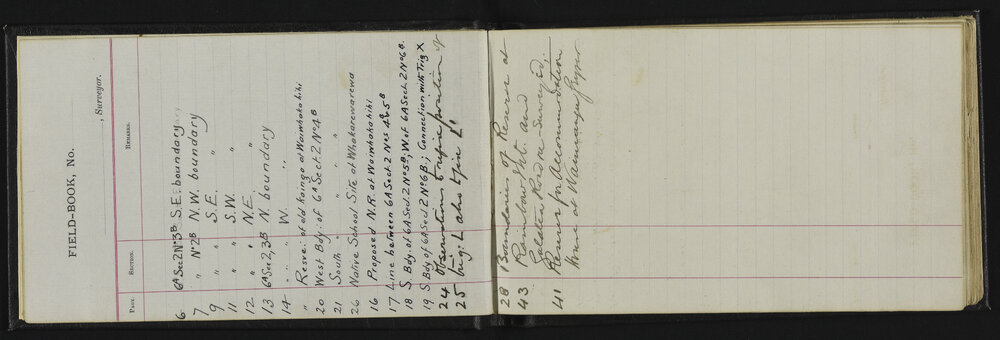 FIELD-BOOK, No.
, Surveyor.
PAGE. SECTION. REMARKS.
6 6A Sec 2 No 3B S.E. boundary
7 " No 2B N.W. boundary
9 " " S.E. "
11 " " S.W. "
12 " " N.E. "
13 6A Sec 2, 3B N. boundary
14 " " " W. "
" Resve: of old Kainga at Waiwhakahihi
20 West Bdy: of 6A Sect. 2 No 4B
21 South " " "
26 Native School Site at Whakarewarewa
16 Proposed N.R. at Waiwhakahihi
17 Line between 6A Sect. 2 Nos 4 & 5B
18 S. Bdy: of 6A Sect. 2 No 5B; W. of 6A Sect. 2 No 6B.
19 S. Bdy of 6A Sect. 2 No 6B; Connection with Trig X
24 Observations to refix position of
25 Trig: L also to fix L1
28 Boundaries of Reserve at
43 Rainbow Mt. and
Galatea Road re-surveyed,
41 Reserve for Accommodation
House at Waimangu Geyser